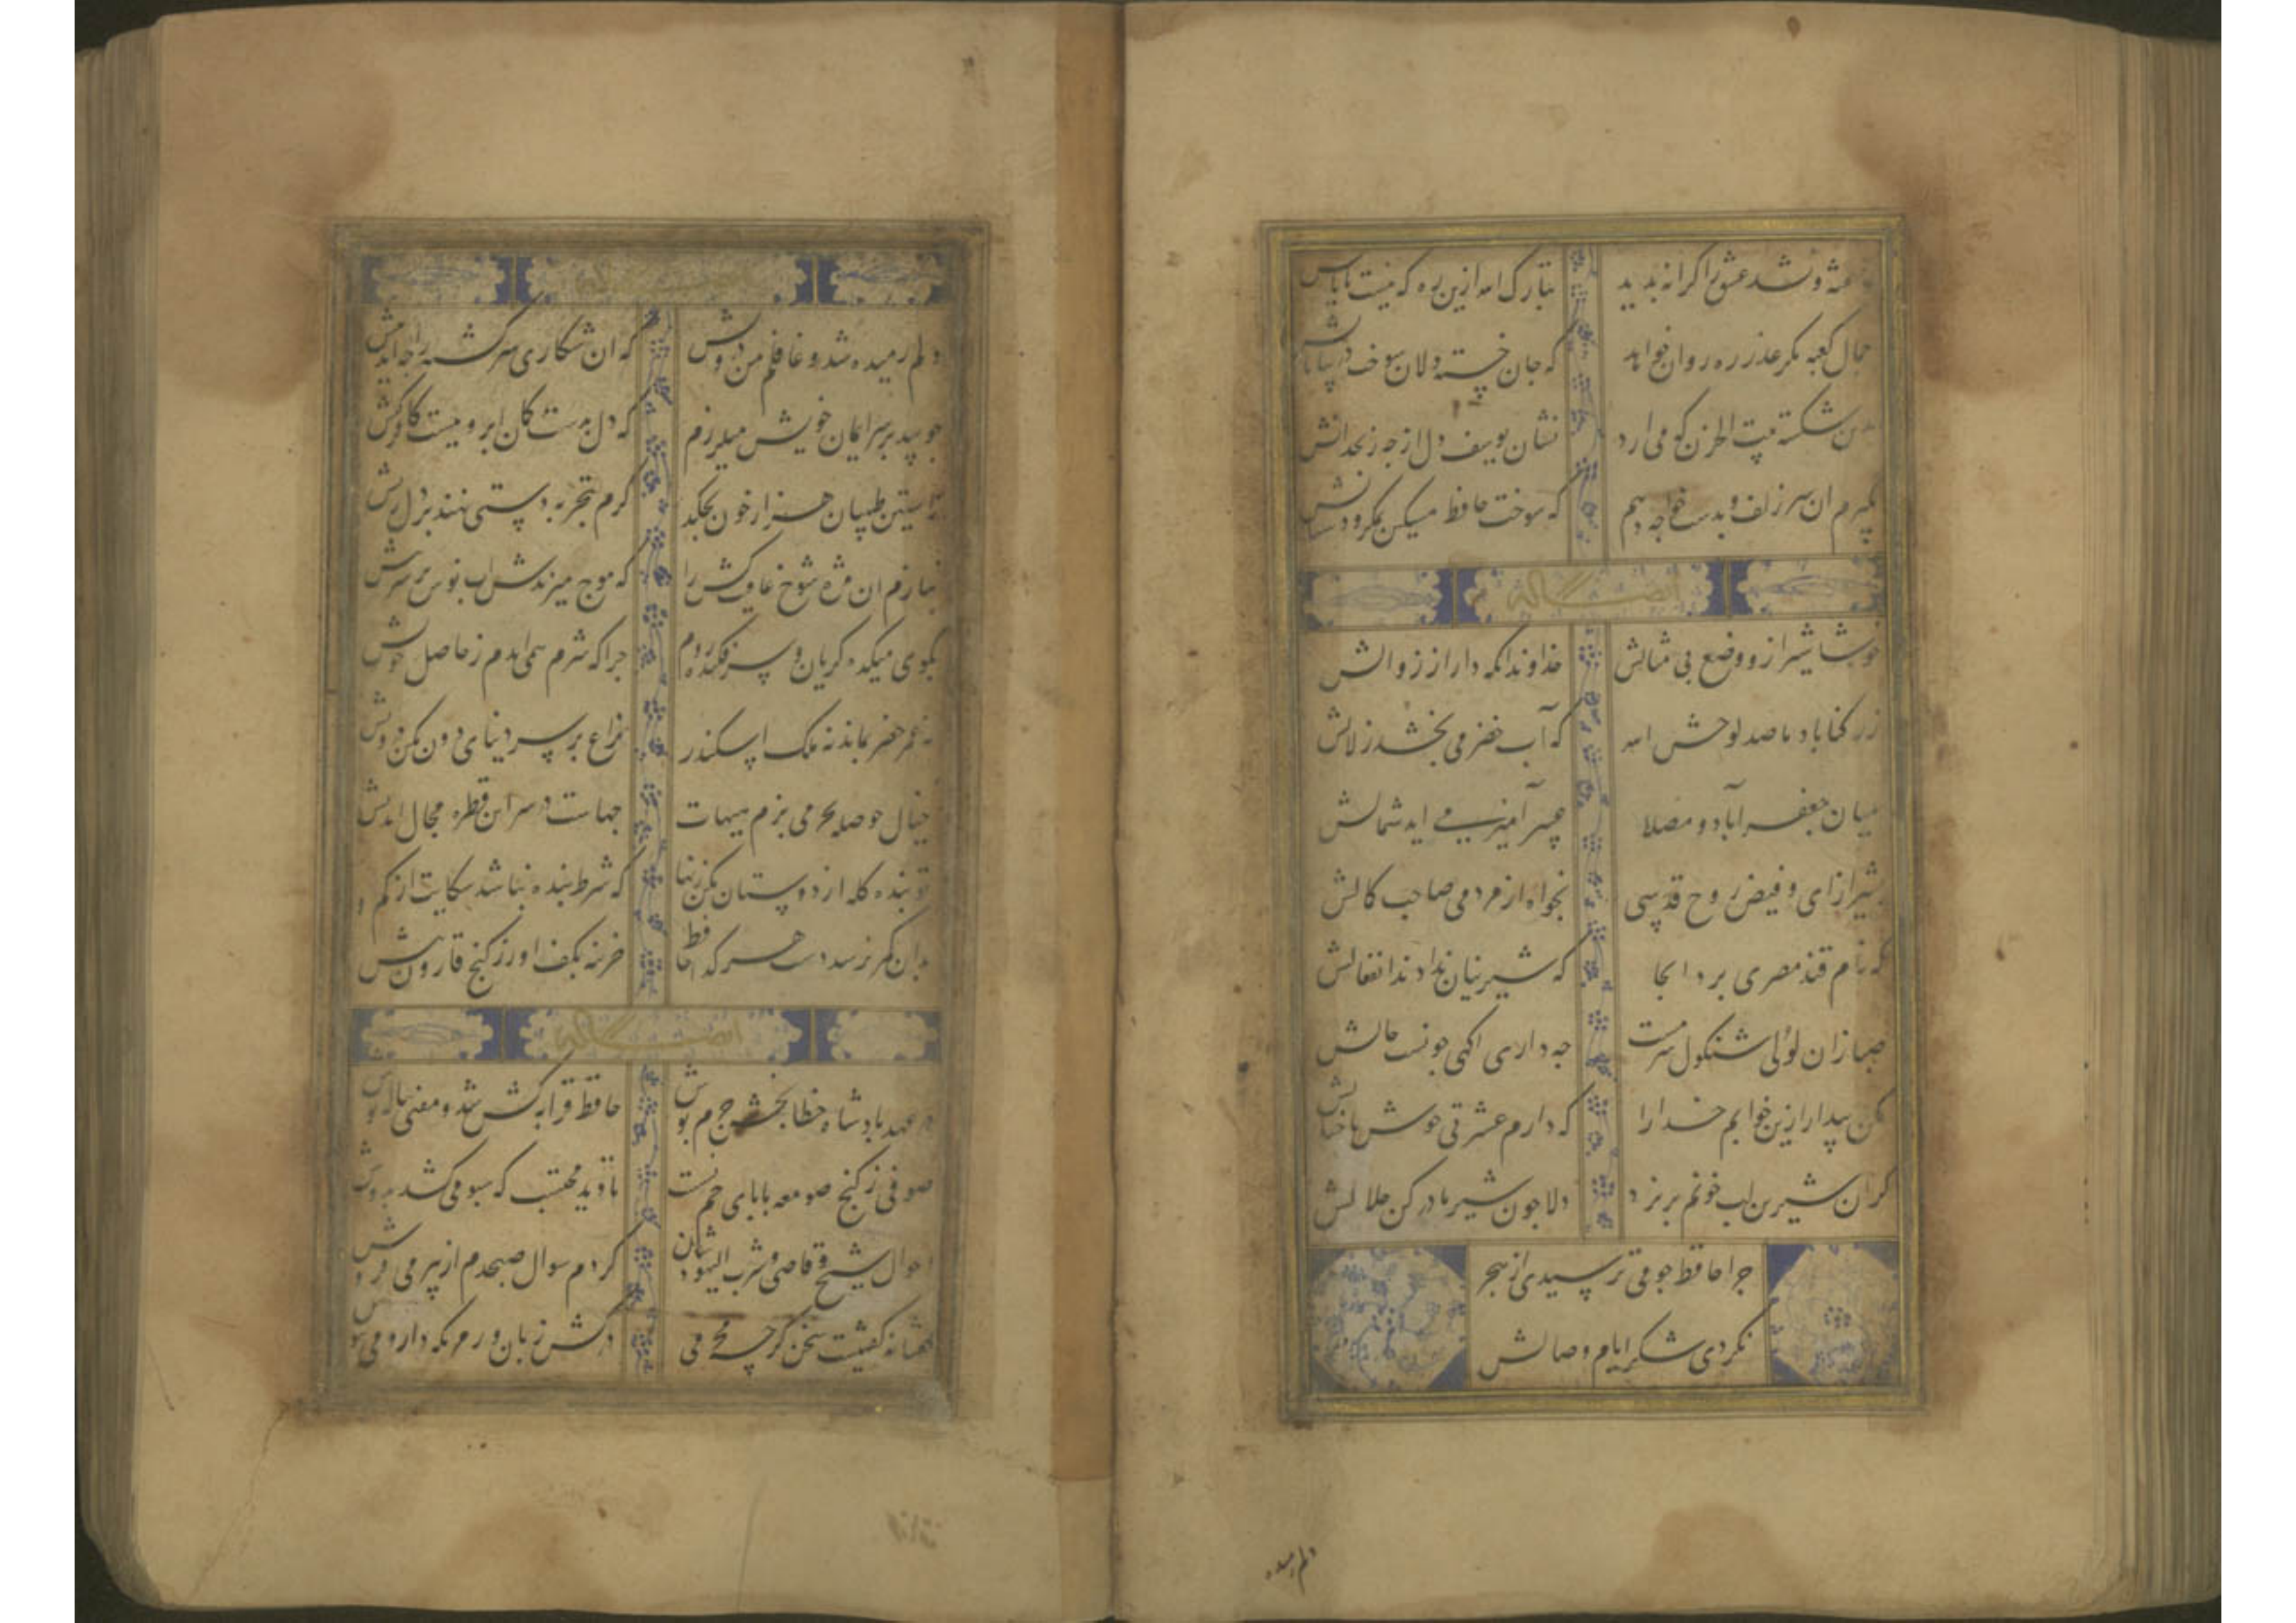 نشد عشق را کرانه بدید تبارک الله ازین ره که نیست پایانش
جمال کعبه مکر عذر ره روان خواهد که جان خسته دلان سوخت در بیابانش
بدین شکسته بیت الحزن که می ارد نشان یوسف دل از چه زنخدانش
بکیرم ان سر زلف و بدست خواجه دهم که سوخت حافظ مسکین ز مکر و دستانش
ایضا له
خوشا شیراز و وضع بی مثالش خداوندا نکه دار از زوالش
ز رکناباد ما صد لوحش الله که آب خضر می بخشد زلالش
میان جعفر آباد و مصلا عبیر آمیز می اید شمالش
بشیراز ای و فیض روح قدسی بخواه از مردمی صاحب کمالش
که نام قند مصری برد انجا که شیرینان ندادند انفعالش
صبا زان لولی شنکول سرمست چه داری اکهی جونست حالش
مکن بیدار ازین خوابم خدا را که دارم عشرتی خوش با خیالش
کر ان شیرین لب خونم بریزد دلا جون شیر مادر کن حلالش
چرا حافظ جو می ترسیدی از هجر
نکردی شکر ایام وصالش
دلم رمیده
دلم رمیده شد و غافلم من درویش که ان شکاری سرکشته را چه امد پیش
چو بید بر سر ایمان خویش میلرزم که دل بدست کمان ابرویست کافر کیش
ز آستین طبیبان هزار خون بچکد کرم بتجربه دستی نهند بر دل ریش
بنازم ان مژه شوخ عافیت کش را که موج میزندش اب نوش بر سر نیش
بکوی میکده کریان و سر فکنده روم چرا که شرم همی ایدم ز حاصل خویش
نه عمر خضر بماند نه ملک اسکندر نزاع بر سر دنیای دون مکن درویش
خیال حوصله بحر می پزم هیهات چهاست در سر این قطره محال اندیش
تو بنده کله از دوستان مکن زنهار که شرط بنده نباشد شکایت از کم و
بدان کمر نرسد دست هر کدا حافظ خزینه بکف اور ز کنج قارون بیش
ایضا له
در عهد بادشاه خطابخش جرم پوش حافظ قرابه کش شد و مفتی پیاله نوش
صوفی ز کنج صومعه با پای خم نشست تا دید محتسب که سبو می کشد بدوش
احوال شیخ و قاضی و شرب الیهودشان کردم سوال صبحدم از پیر می فروش
کفتا نه کفتنیست سخن کرچه محرمی درکش زبان و نکه دار و می بنوش